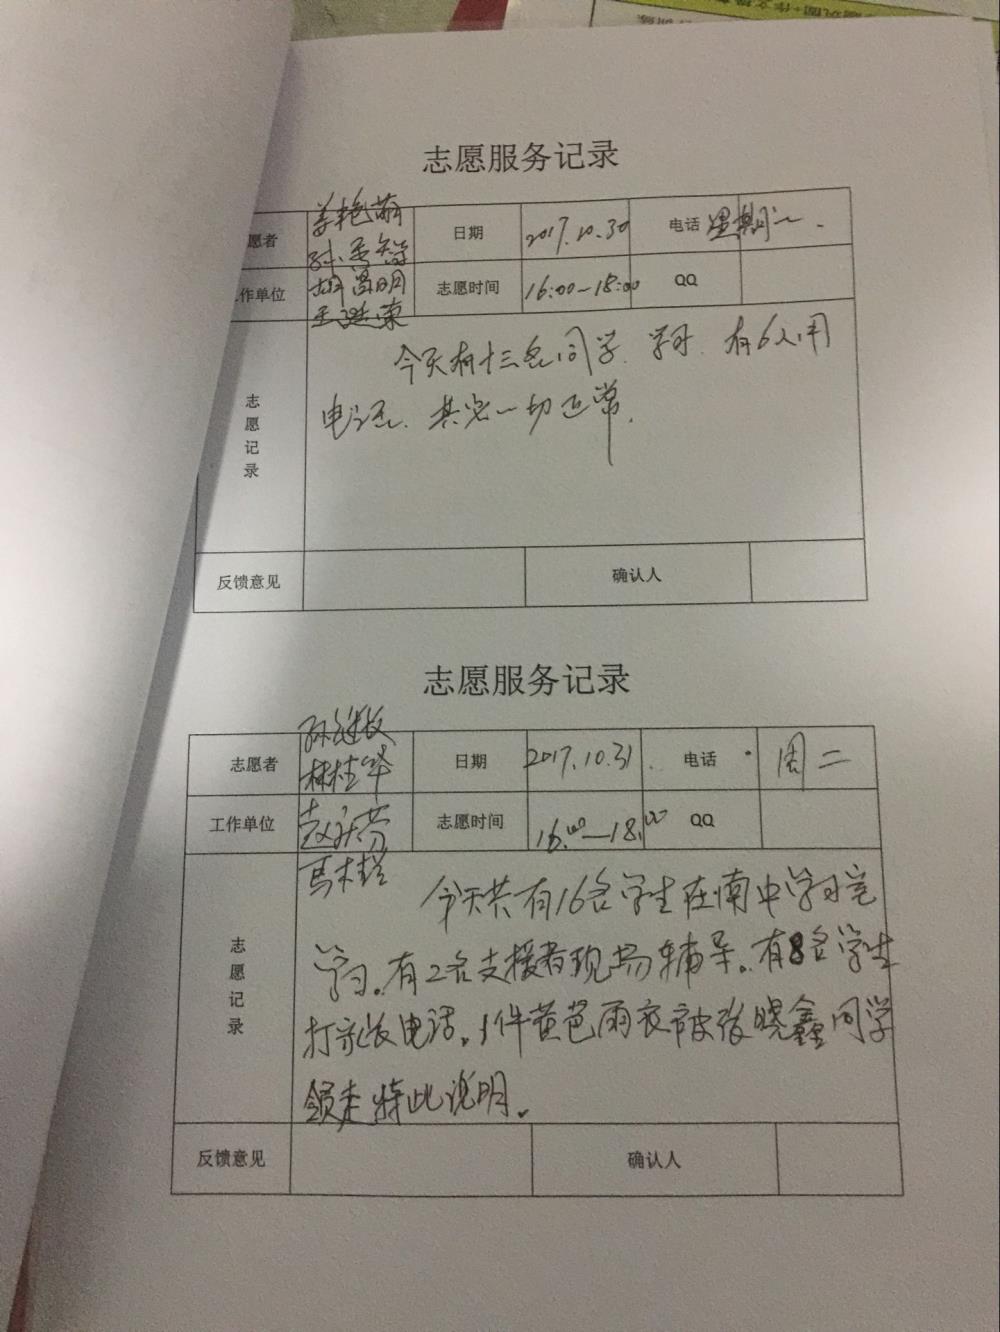 志愿服务记录
愿者 姜艳萌 日期 2017.10.30 电话 星期一.
孙秀智
工作单位 胡昌明 志愿时间 16:00-18:00 QQ
荣
今天有十三名同学学习.有6人用
电话.其它一切正常.
志愿记录
反馈意见 确认人
志愿服务记录
志愿者 日期 2017.10.31. 电话 周二
林桂华
工作单位 赵庆芬 志愿时间 16:00—18:00 QQ
马桂
今天共有16名学生在南中学习室
学习。有2名支援者现场辅导。有8名学生
打电话。1件黄色雨衣被张晓鑫同学
领走特此说明。
志愿记录
反馈意见 确认人